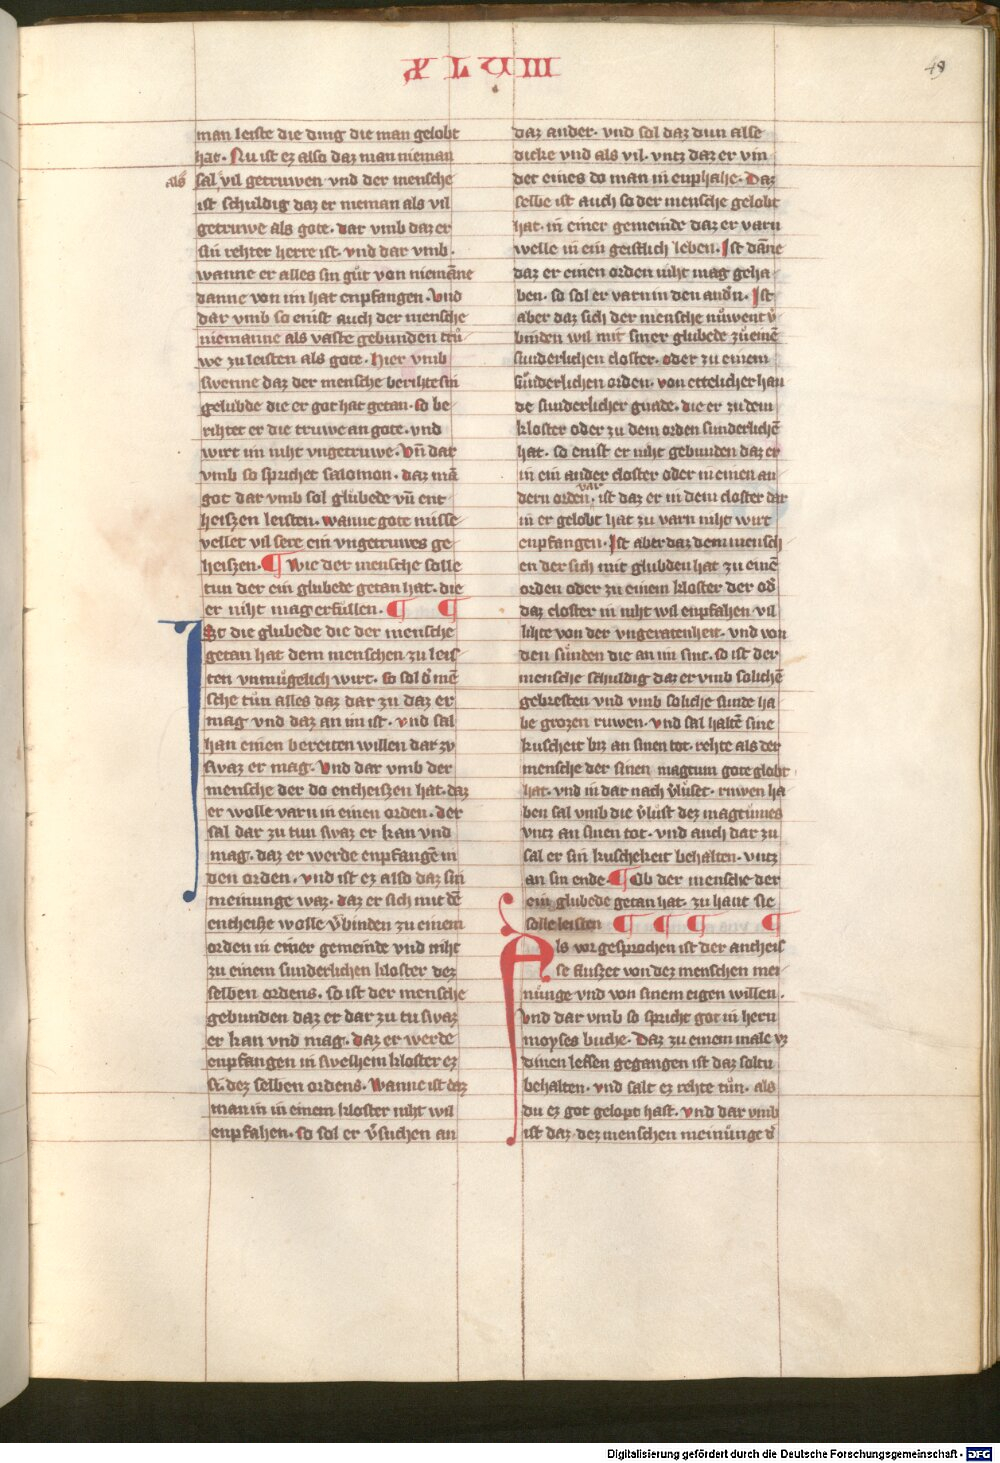 XLVIII
48
man leiste die ding die man gelobt
hat. Nu ist ez also daz man nieman
als
sal vil getruwen vnd der mensche
ist schuldig daz er nieman als vil
getruwe als gote. dar vmb daz er
sin rehter herre ist. vnd dar vmb.
wanne er alles sin gůt von niemāne
danne von im hat enpfangen. Vnd
dar vmb so enist auch der mensche
niemanne als vaste gebunden trů
we zu leisten als gote. Hier vmb
swenne daz der mensche berihte sin
gelubde die er got hat getan. so be
rihtet er die truwe an gote. vnd
wirt im niht vngetruwe. Vn̄ dar
vmb so sprichet salomon. daz mā
got dar vmb sol glubede vn̄ ent
heiszen leisten. wanne gote misse
vellet vil sere ein vngetruwes ge
heiszen. ¶ Wie der mensche solle
tun der ein glubede getan hat. die
er niht mag erfullen. ¶ ¶
Ist die glubede die der mensche
getan hat dem menschen zu leis
ten vnmůgelich wirt. so sol d̓ mē
sche tůn alles daz dar zu daz er
mag vnd daz an im ist. vnd sal
han einen bereiten willen dar zv
swaz er mag. Vnd dar vmb der
mensche der do entheiszen hat. daz
er wolle varn in einen orden. der
sal dar zu tun swaz er kan vnd
mag. daz er werde enpfangē in
den orden. vnd ist ez also daz sin
meinunge waz. daz er sich mit dē
entheisze wolle v̓binden zu einem
orden in einer gemeinde vnd niht
zu einem sunderlichen kloster dez
selben ordens. so ist der mensche
gebunden daz er dar zu tu swaz
er kan vnd mag. daz er werde
enpfangen in swelhem kloster ez
si. dez selben ordens. Wanne ist daz
man in in einem kloster niht wil
enpfahen. so sol er v̓suchen an
daz ander. vnd sol daz dun alse
dicke vnd als vil. vntz daz er vin
det eines do man in enphahe. Daz
selbe ist auch so der mensche gelobt
hat. in einer gemeinde daz er varn
welle in ein geistlich leben. Ist dāne
daz er einen orden niht mag geha
ben. so sol er varn in den and̓n. Ist
aber daz sich der mensche nůwent v̓
binden wil mit siner glubede zů einē
sunderlichen closter. oder zu einem
sůnderlichen orden. von ettelicher han
de sunderlicher gnade. die er zu dem
kloster oder zu dem orden sunderlichē
hat. so enist er niht gebunden daz er
in ein ander closter oder in einen an
var
dern orden. ist daz er in dem closter dar
in er gelobt hat zu varn niht wirt
enpfangen. Ist aber daz dem mensch
en der sich mit glubden hat zu einē
orden oder zu einem kloster der od̓
daz closter in niht wil enpfahen vil
lihte von der vngeratenheit. vnd von
den sůnden die an im sint. so ist der
mensche schuldig daz er vmb solichē
gebresten vnd vmb soliche sunde ha
be grozen ruwen. vnd sal haltē sine
kuscheit biz an sinen tot. rehte als der
mensche der sinen magtum gote globt
hat. vnd in dar nach v̓luset. ruwen ha
ben sal vmb die v̓lust dez magtůmes
vntz an sinen tot. vnd auch dar zu
sal er sin kuschekeit behalten. vntz
an sin ende. ¶ Ob der mensche der
ein glubede getan hat. zu hant sie
solle leisten ¶ ¶ ¶ ¶
Als vor gesprochen ist der antheis
se ůszer von dez menschen mei
nůnge vnd von sinem eigen willen.
vnd dar vmb so spricht got in hern
moyses buche. Daz zu einem male vz
dinen lefsen gegangen ist daz soltu
behalten. vnd salt ez rehte tůn. als
du ez got gelopt hast. vnd dar vmb
ist daz. dez menschen meinůnge d̓
Digitalisierung gefördert durch die Deutsche Forschungsgemeinschaft - DFG